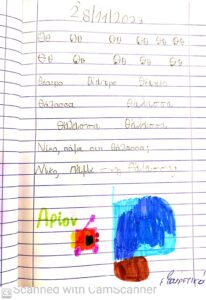 28/11/2023
Θθ Θθ Θθ Θθ Θθ Θθ
Θθ Θθ Θθ Θθ Θθ Θθ
θέατρο θέατρο θέατρο
θάλασσα θάλασσα
θάλασσα θάλασσα
Νίκο, πάμε στη θάλασσα;
Νίκο, πάμε στη θάλασσα;
Αρίον
Scanned with CamScanner